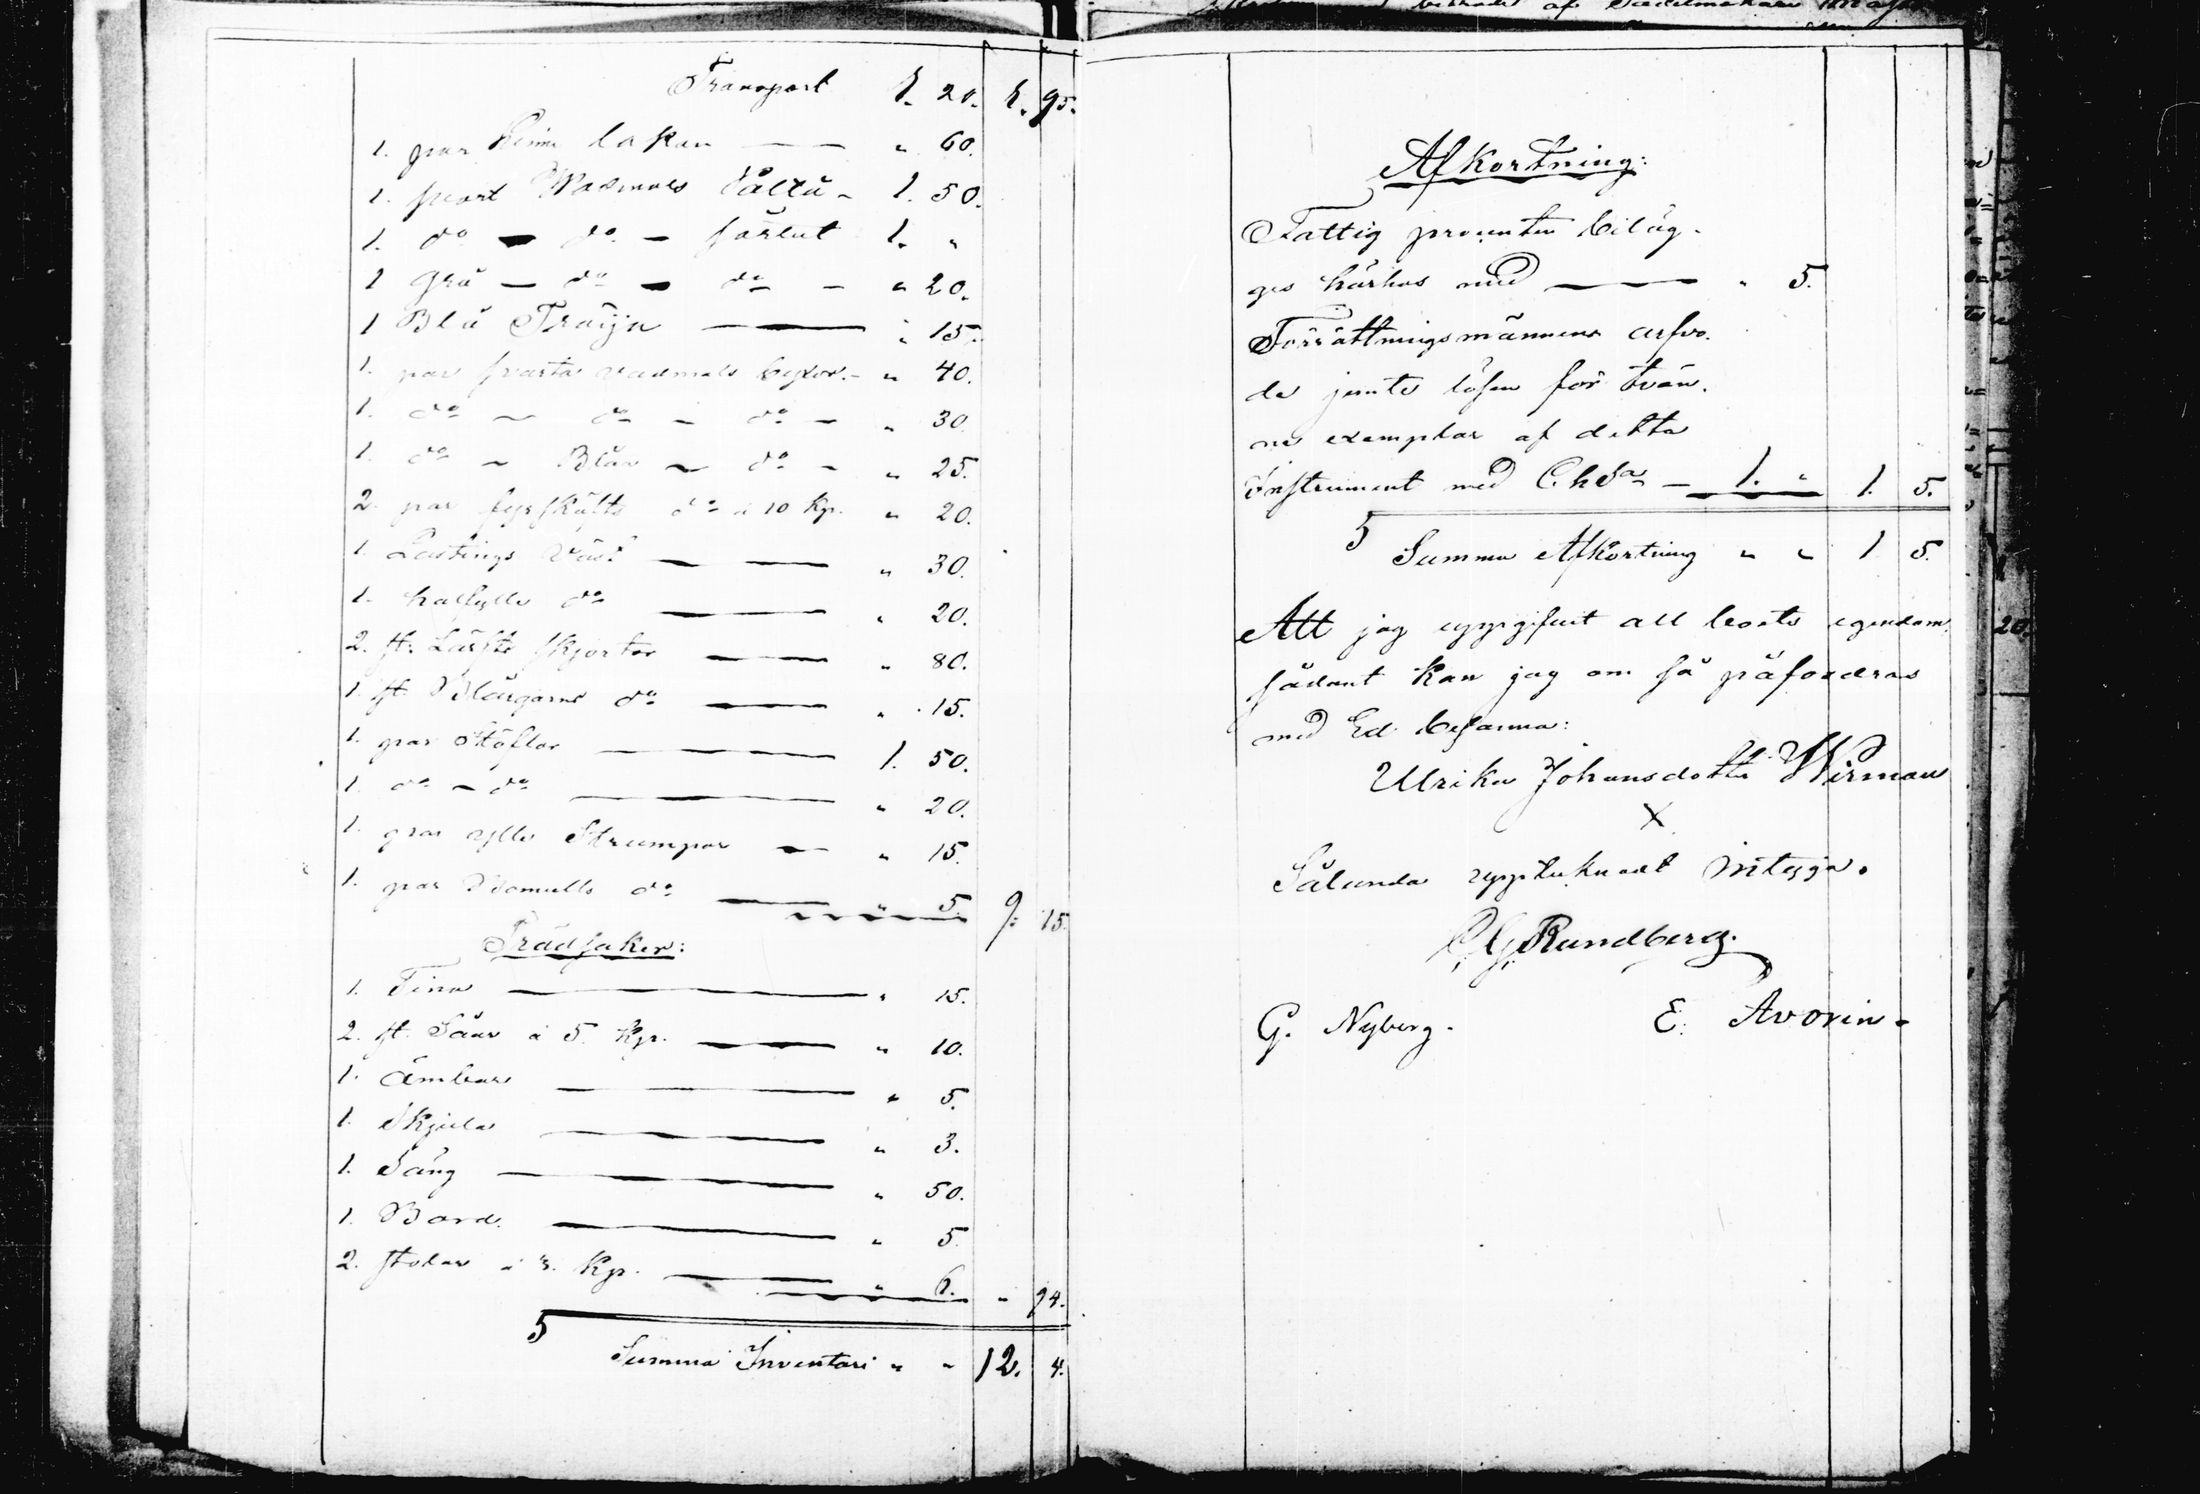 Transport 1. 20. 1. 95.
1. par Linne lakan " 60.
1. svart Wadmals Pältå 1. 50.
1. do do förlut 1. "
1 Grå do do " 20.
1 Blå Tröija " 15.
1. par svarta vadmals byxor " 40.
1. do do do " 30
1. do Blåa do " 25.
2 par fyrskäfts do a 10 Kp. " 20.
1. Lastings Väst " 30.
1. halfylle do " 20.
2. st. Lärfts skjortor " 80.
1. st. Blångarns do " 15.
1. par Stöflor 1. 50.
1. do do " 20.
1. par ylle Strumpor " 15.
1. par Bomulls do " 5. 9. 15.
Trädsaker:
1. Tina " 15.
2. st. Såar a 5. Kp. " 10.
1. ämbar " 5.
1. Skjula " 3.
1. Säng " 50.
1. Bord " 5
2. stolar a 3. Kp. " 6. " 94.
Summa Inventari " " 12. 4.
Afkortning:
Fattig procenten biläg-
ges härhos med " 5.
Förrättningsmännens arfvo-
de jemte lösen för tvän-
ne exemplar af detta
Instrument med Ch. Sa 1. " 1. 5.
Summa Afkortning " " 1 5.
Att jag uppgifvit all boets egendom
sådant kan jag om så påfordras
med Ed besanna:
Ulrika Johansdotter Wirman
X
Sålunda upptecknadt intyga.
C. G. Rundberg.
G. Nyberg. E. Avorin.